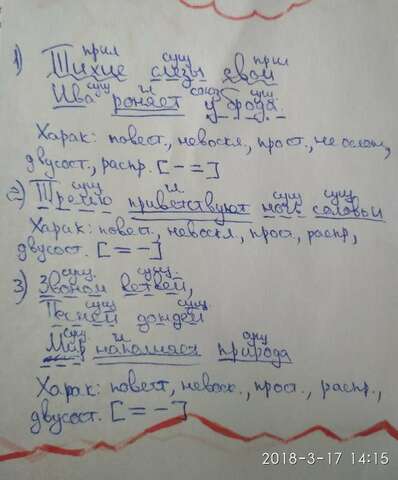 прил сущ прил
1) Тихие слёзы свои
сущ г союз сущ.
Ива роняет у брода.
Харак: повест., невоскл., прост., не ослож.,
двусост., распр. [- =]
сущ г сущ сущ
2) Трелью приветствуют ночь соловьи
Харак: повест., невоскл., прост., распр.,
двусост. [= -]
сущ. сущ.
3) Звоном ветвей,
сущ сущ.
Песней дождей
сущ. г сущ
Мир наполняет природа
Харак: повест, невоск., прост., распр.,
двусост. [= -]
2018-3-17 14:15